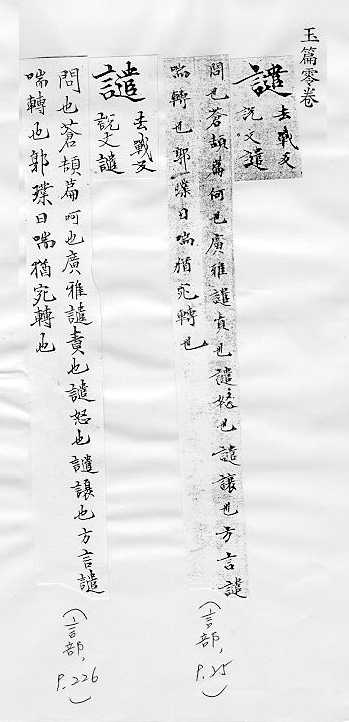 玉篇零卷
譴
去戰反
説文譴
問也蒼頡篇呵也廣雅譴責也譴怒也譴讓也方言譴
喘轉也郭璞曰喘猶宛轉也
(言部, P.25)
譴
去戰反
説文譴
問也蒼頡篇呵也廣雅譴責也譴怒也譴讓也方言譴
喘轉也郭璞曰喘猶宛轉也
(言部, P.226)